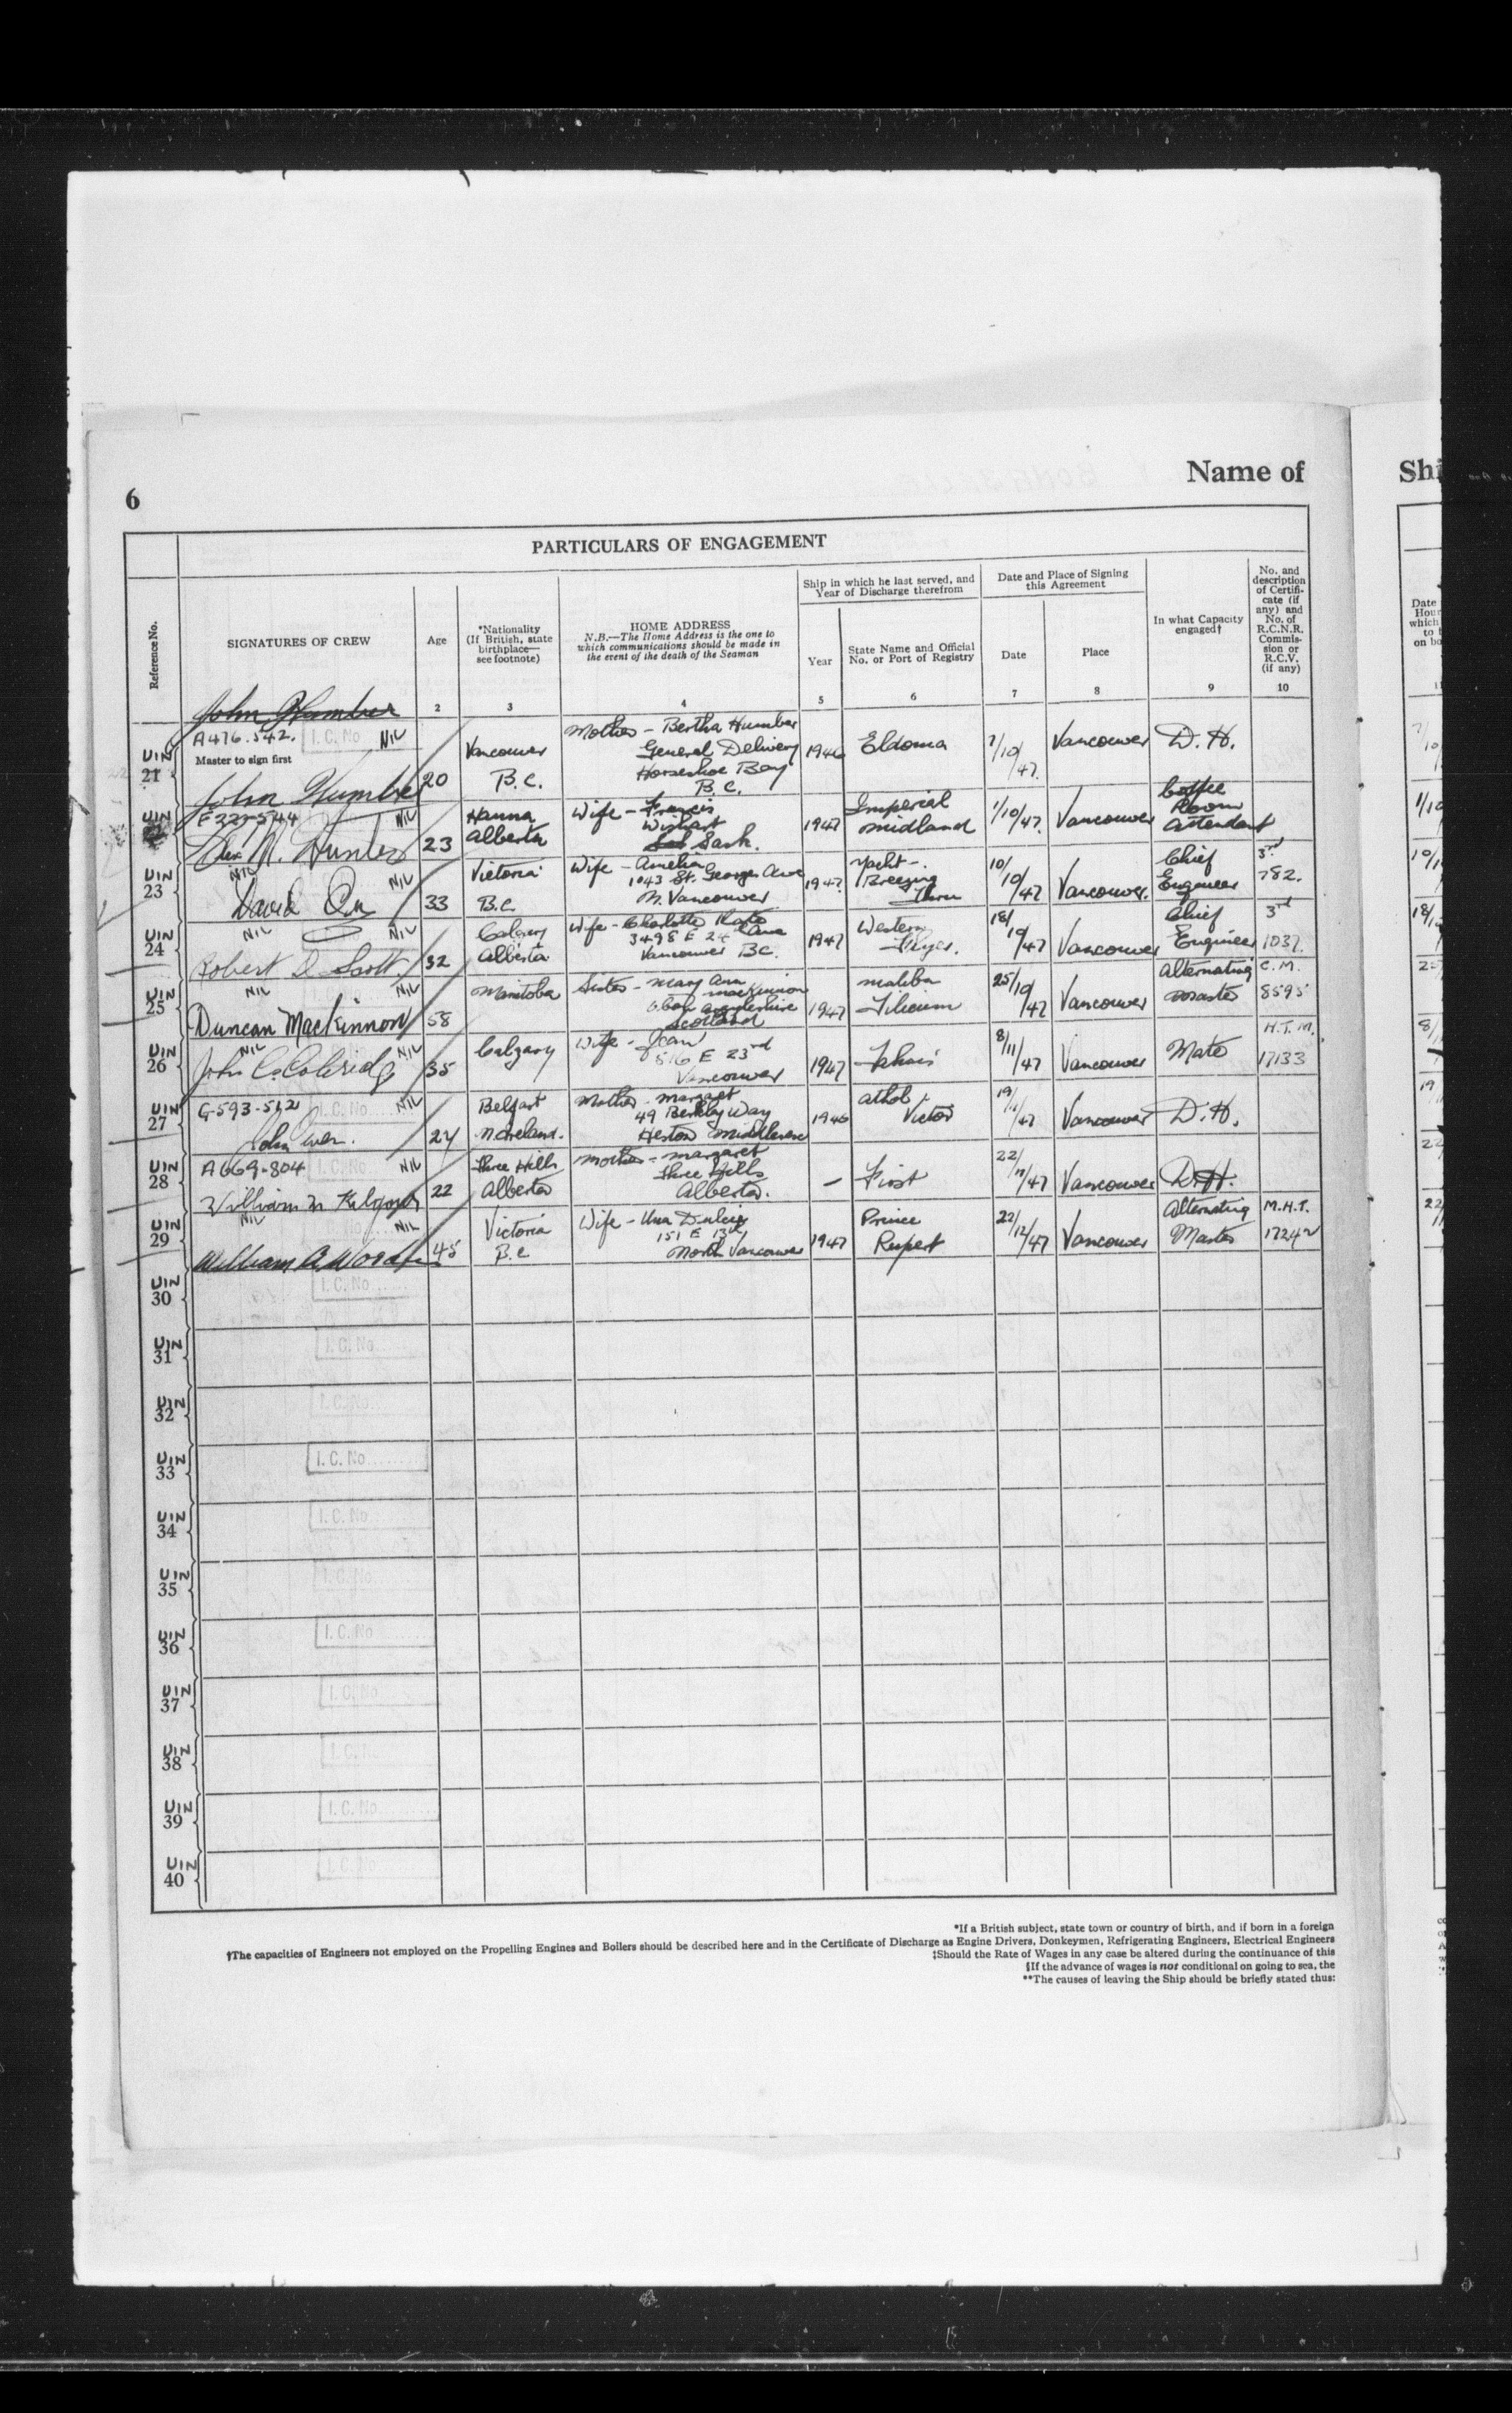 6
Name of
PARTICULARS OF ENGAGEMENT
Reference No.
SIGNATURES OF CREW
Age
*Nationality
(If British, state
birthplace—
see footnote)
HOME ADDRESS
N.B.—The Home Address is the one to
which communications should be made in
the event of the death of the Seaman
Ship in which he last served, and
Year of Discharge therefrom
Year
State Name and Official
No. or Port of Registry
Date and Place of Signing
this Agreement
Date
Place
In what Capacity
engaged†
No. and
description
of Certifi-
cate (if
any) and
No. of
R.C.N.R.
Commis-
sion or
R.C.V.
(if any)
2 3 4 5 6 7 8 9 10
John Humber
A476.542. I. C. No NIL
Master to sign first
UIN 21 John Humber 20 Vancouver B.C.
Mother - Bertha Humber
General Delivery
Horseshoe Bay
B.C.
1946 Eldoma 7/10/47. Vancouver D.H.
UIN NIL
Alex N. Hunter 23 Hanna Alberta
Wife - Francis
Wishart
Sask.
1947 Imperial Midland 1/10/47. Vancouver Coffee Room Attendant
UIN 23 NIL NIL
David Orr 33 Victoria B.C.
Wife - Amelia
1043 St. Georges Ave
N. Vancouver
1947. Yacht - Breezing Thru 10/10/47 Vancouver. Chief Engineer 3rd 782.
UIN 24 NIL NIL
Robert D Scott. 32 Calgary Alberta
Wife - Charlotte Kate
3498 E 24 Ave
Vancouver BC.
1947 Western 18/10/47 Vancouver Chief Engineer 3rd 1037.
UIN 25 NIL NIL
Duncan MacKinnon 58 Manitoba
Sister - Mary Ann
MacKinnon
Oban Argyleshire
Scotland
1947 Malibu Tilicum 25/10/47 Vancouver Alternating Master C.M. 8595
UIN 26 NIL NIL
John C. Coleridge 35 Calgary
Wife - Jean
816 E 23rd
Vancouver
1947 8/11/47 Vancouver Mate H.T.M. 17133
UIN 27 G-593-512 I. C. No NIL
John 24 Belfast N. Ireland.
Mother - Margaret
49 Berkley Way
Heston Middlesex
1946 Athol Victor 19/11/47 Vancouver D.H.
UIN 28 A669-804 I. C. No NIL
William 22 Three Hills Alberta
Mother - Margaret
Three Hills
Alberta.
— First 22/11/47 Vancouver D.H.
UIN 29 NIL NIL
William A. 45 Victoria B.C
Wife - Una
151 E 13th
North Vancouver
1947 Prince Rupert 22/12/47 Vancouver Alternating Master M.H.T. 17242
UIN 30 I. C. No
UIN 31 I. C. No
UIN 32 I. C. No
UIN 33 I. C. No
UIN 34 I. C. No
UIN 35 I. C. No
UIN 36 I. C. No
UIN 37 I. C. No
UIN 38 I. C. No
UIN 39 I. C. No
UIN 40 I. C. No
*If a British subject, state town or country of birth, and if born in a foreign
†The capacities of Engineers not employed on the Propelling Engines and Boilers should be described here and in the Certificate of Discharge as Engine Drivers, Donkeymen, Refrigerating Engineers, Electrical Engineers
‡Should the Rate of Wages in any case be altered during the continuance of this
§If the advance of wages is not conditional on going to sea, the
**The causes of leaving the Ship should be briefly stated thus: